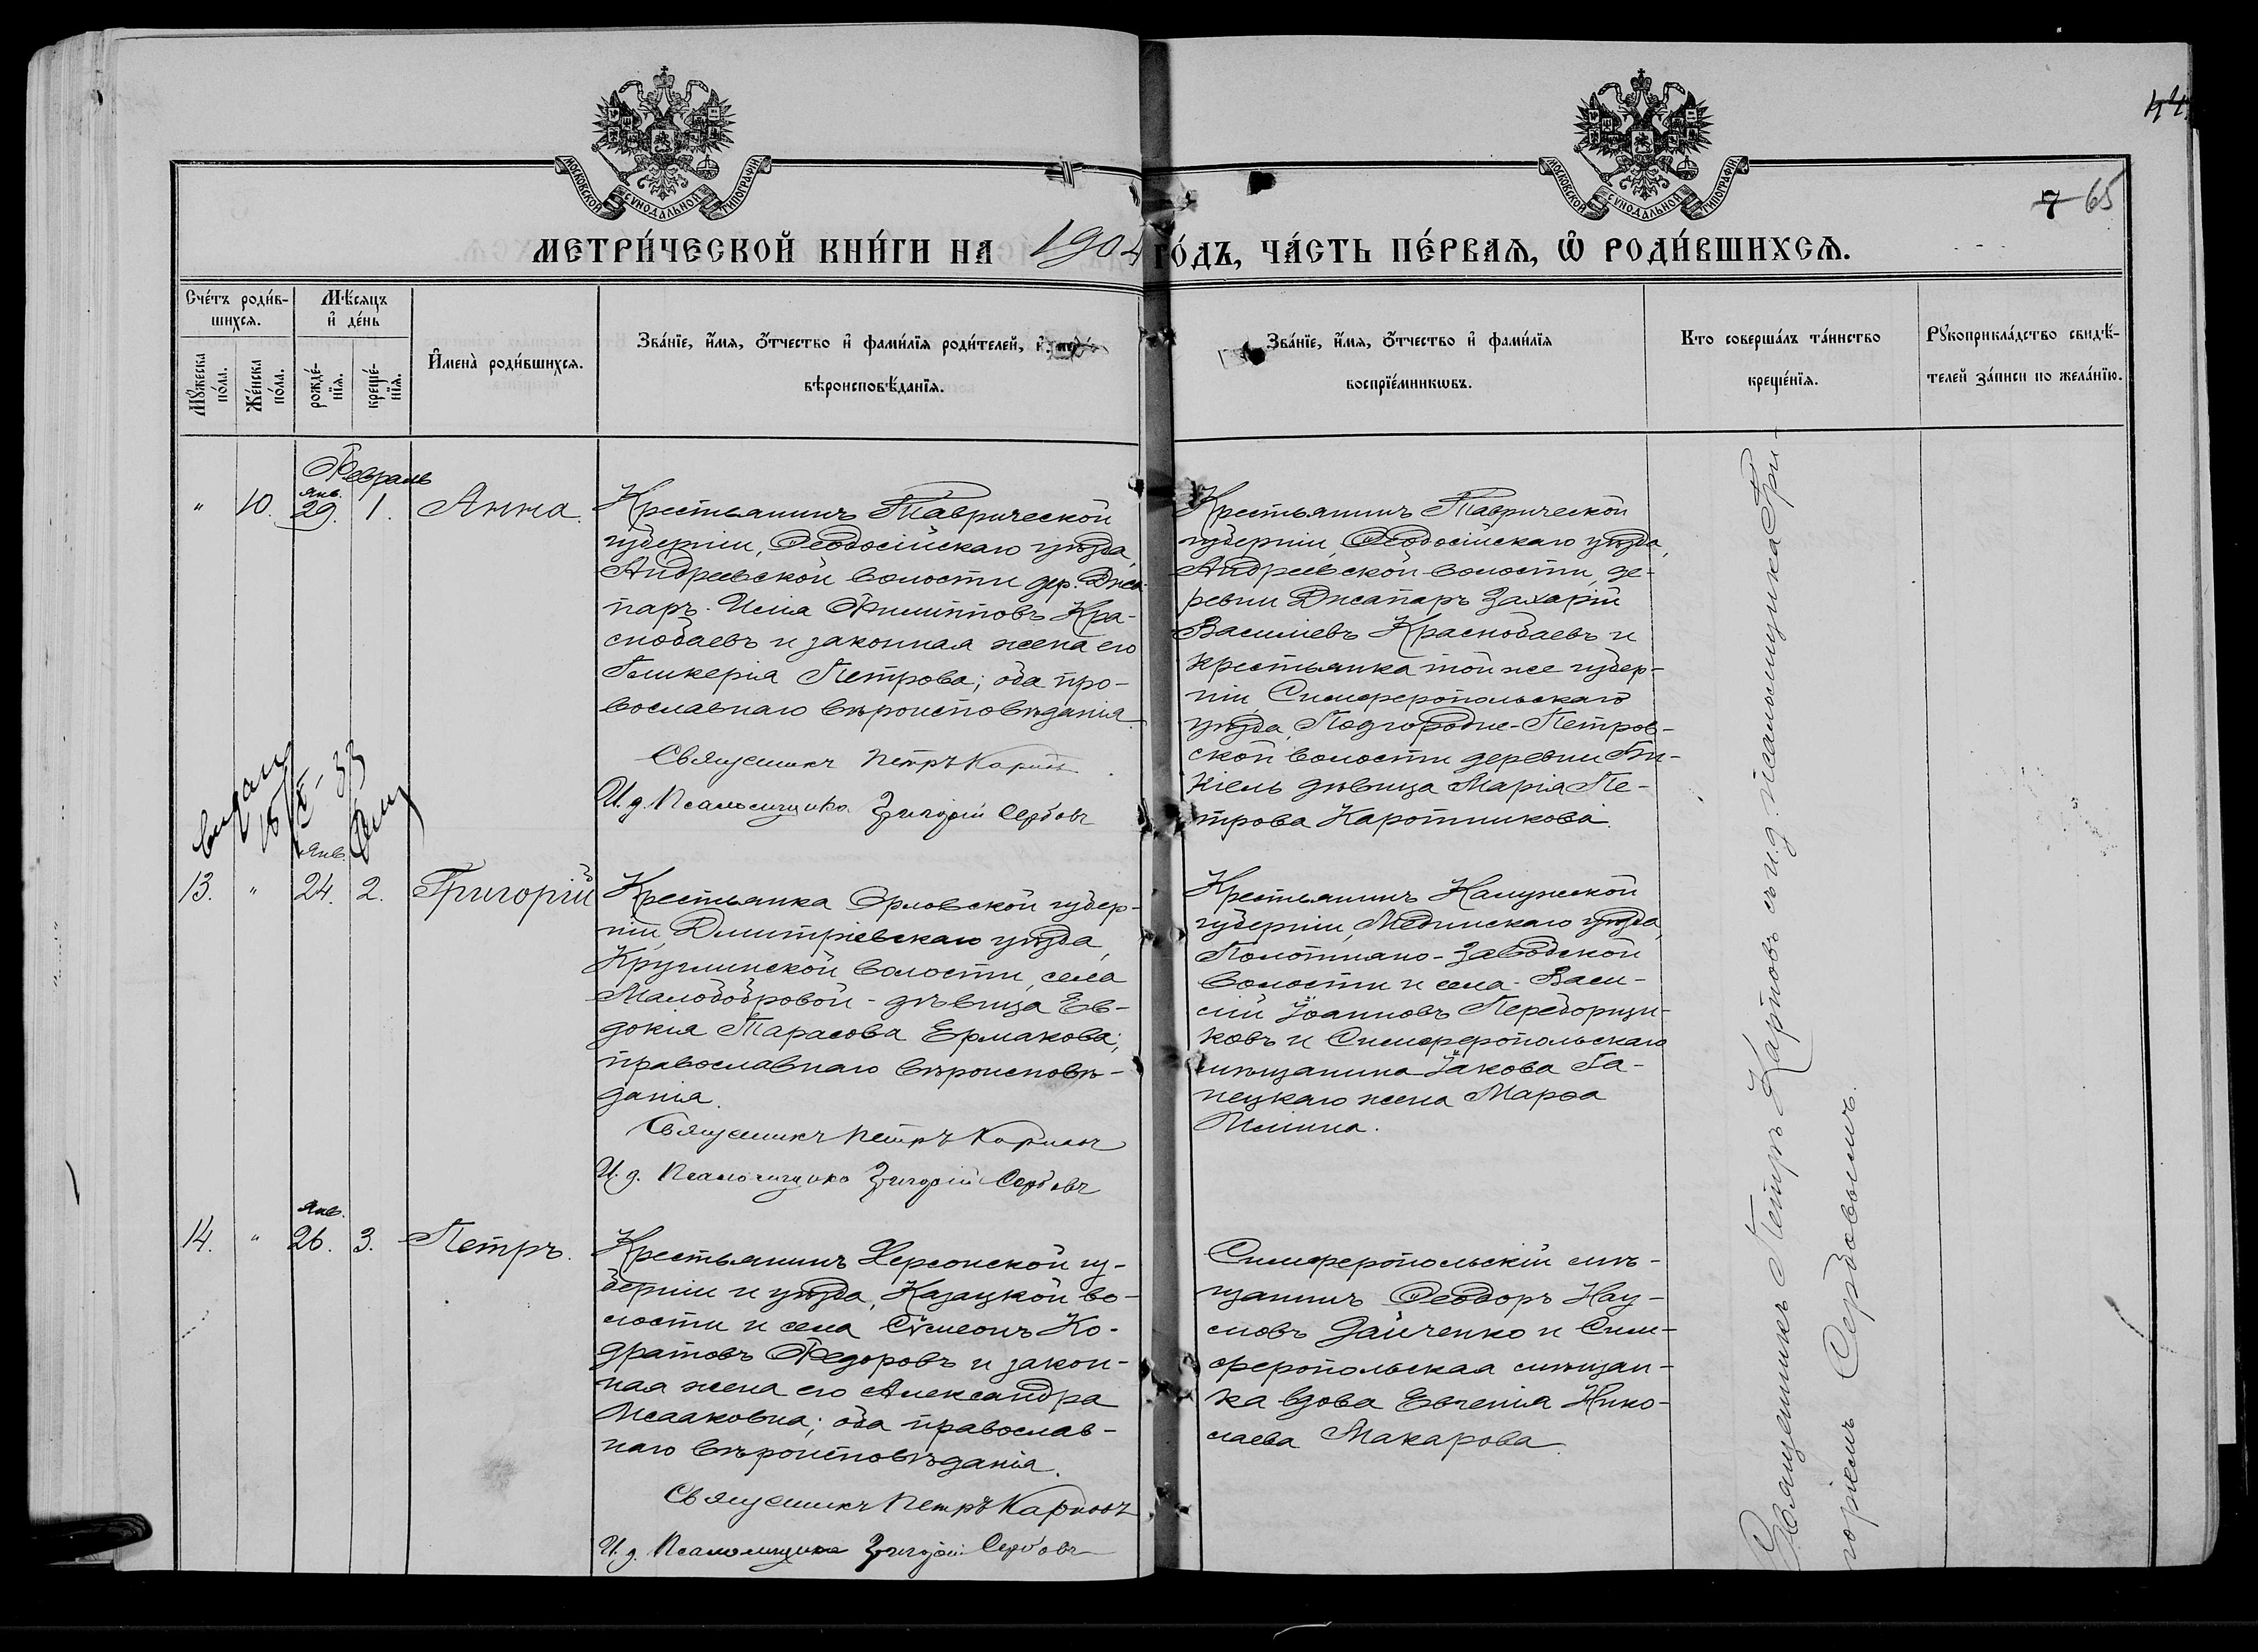 МОСКОВСКОЙ СѴНОДАЛЬНОЙ ТИПОГРАФІИ
МОСКОВСКОЙ СѴНОДАЛЬНОЙ ТИПОГРАФІИ
7 65
МЕТРИ́ЧЕСКОЙ КНИ́ГИ НА 1904 ГО́ДЪ, ЧА́СТЬ ПЕ́РВАѦ, Ѡ҆ РОДИ́ВШИХСѦ.
Сче́тъ роди́в-
шихсѧ.
Мѣ́сѧцъ
и҆ де́нь
Мꙋ́жеска
по́ла.
Же́нска
по́ла.
рожде́-
нїѧ.
креще́-
нїѧ.
И҆мена̀ роди́вшихсѧ.
Зва́нїе, и҆́мѧ, ѻ҆́тчество и҆ фами́лїѧ роди́телей, и҆
вѣроисповѣ́данїѧ.
Зва́нїе, и҆́мѧ, ѻ҆́тчество и҆ фами́лїѧ
воспрїе́мникѡвъ.
Кто соверша́лъ та́инство
креще́нїѧ.
Рꙋкоприкла́дство свидѣ́-
телей за́писи по жела́нїю.
Февраль
"
10.
Янв.
29.
1.
Анна.
Крестьянинъ Таврической
губерніи, Ѳеодосійскаго уѣзда,
Андреевской волости дер. Джа-
паръ. Илія Филипповъ Кра-
снобаевъ и законная жена его
Гликерія Петрова; оба про-
вославнаго вѣроисповѣданія.
Священникъ Петръ Карповъ
И. д. Псаломщика Григорій Сердовъ
Крестьянинъ Таврической
губерніи, Ѳеодосійскаго уѣзда,
Андреевской волости, де-
ревни Джапаръ Захарій
Василіевъ Краснобаевъ и
крестьянка той же губер-
ніи, Симферопольскаго
уѣзда, Подгородне-Петров-
ской волости деревни Би-
кіель дѣвица Марія Пе-
трова Каротникова.
выдан
18/X-33
13.
"
Янв.
24.
2.
Григорій
Крестьянка Орловской губер-
ніи, Дмитріевскаго уѣзда,
Круглинской волости, села
Малобобровой - дѣвица Ев-
докія Тарасова Ермакова;
православнаго вѣроисповѣ-
данія.
Священникъ Петръ Карповъ
И. д. Псаломщика Григорій Сердовъ
Крестьянинъ Калужской
губерніи, Медынскаго уѣзда,
Полотняно-Заводской
волости и села - Васи-
лій Іоанновъ Переборщи-
ковъ и Симферопольскаго
мѣщанина Іакова Га-
пецкаго жена Марѳа
Иліина.
14.
"
Янв.
26.
3.
Петръ.
Крестьянинъ Херсонской гу-
берніи и уѣзда, Казацкой во-
лости и села Сѵмеонъ Ко-
дратовъ Федоровъ и закон-
ная жена его Александра
Исааковна; оба православ-
наго вѣроисповѣданія.
Священникъ Петръ Карповъ
И. д. Псаломщика Григорій Сердовъ
Симферопольскій мѣ-
щанинъ Ѳеодоръ Нау-
мовъ Зайченко и Сим-
феропольская мѣщан-
ка вдова Евгенія Нико-
лаева Макарова.
Священникъ Петръ Карповъ съ и. д. псаломщика Гри-
горіемъ Сердовымъ.